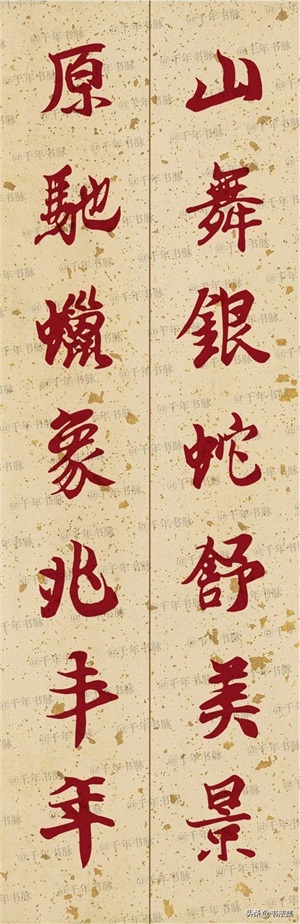 山舞銀蛇舒美景
原馳蠟象兆丰年
@千年书脉
头条@书法鉴